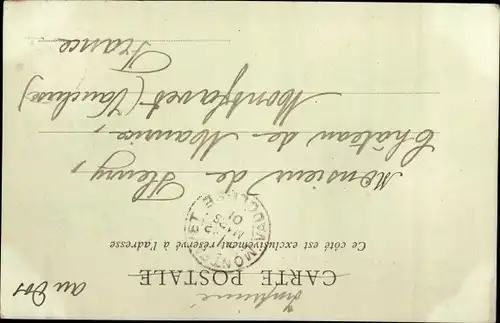 CARTE POSTALE
Ce côté est exclusivement réservé à l'adresse
MONTFAVET VAUCLUSE
MARS
01
Monsieur de Fleury,
Château de
Montfavet (Vaucluse)
France
Imprimé
au Dos